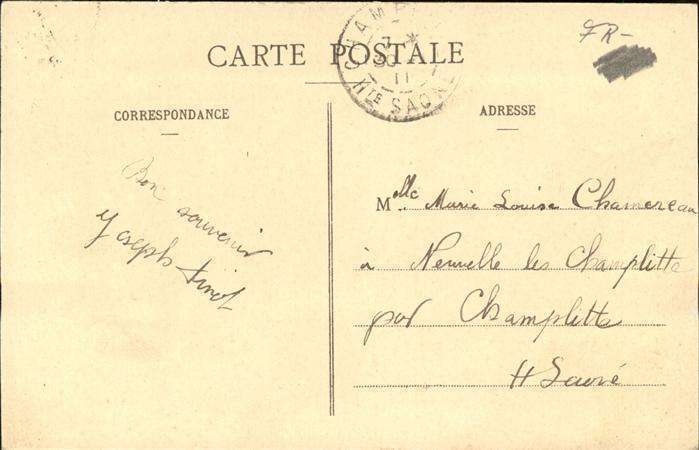 FR-
CARTE POSTALE
CHAM
7 *
11
HTE SAONE
CORRESPONDANCE
ADRESSE
Bon souvenir
Joseph
Mlle Marie Louise Chamereau
à Neuvelle les Champlitte
par Champlitte
H Saône